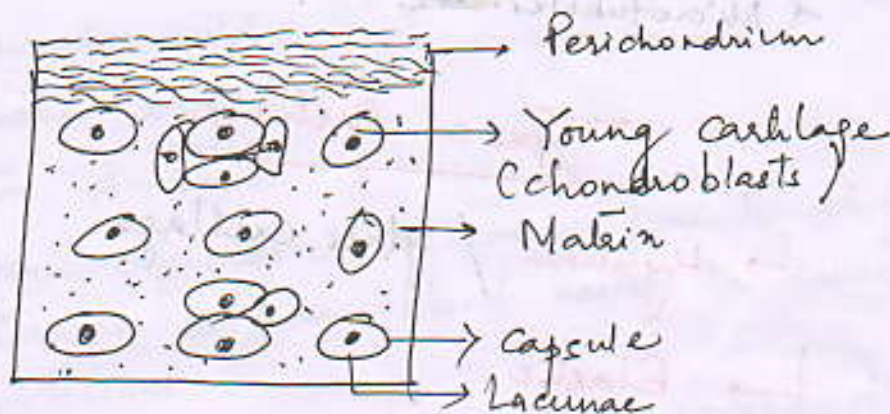 Perichondrium
Young cartilage
(Chondroblasts)
Matrix
Capsule
Lacunae